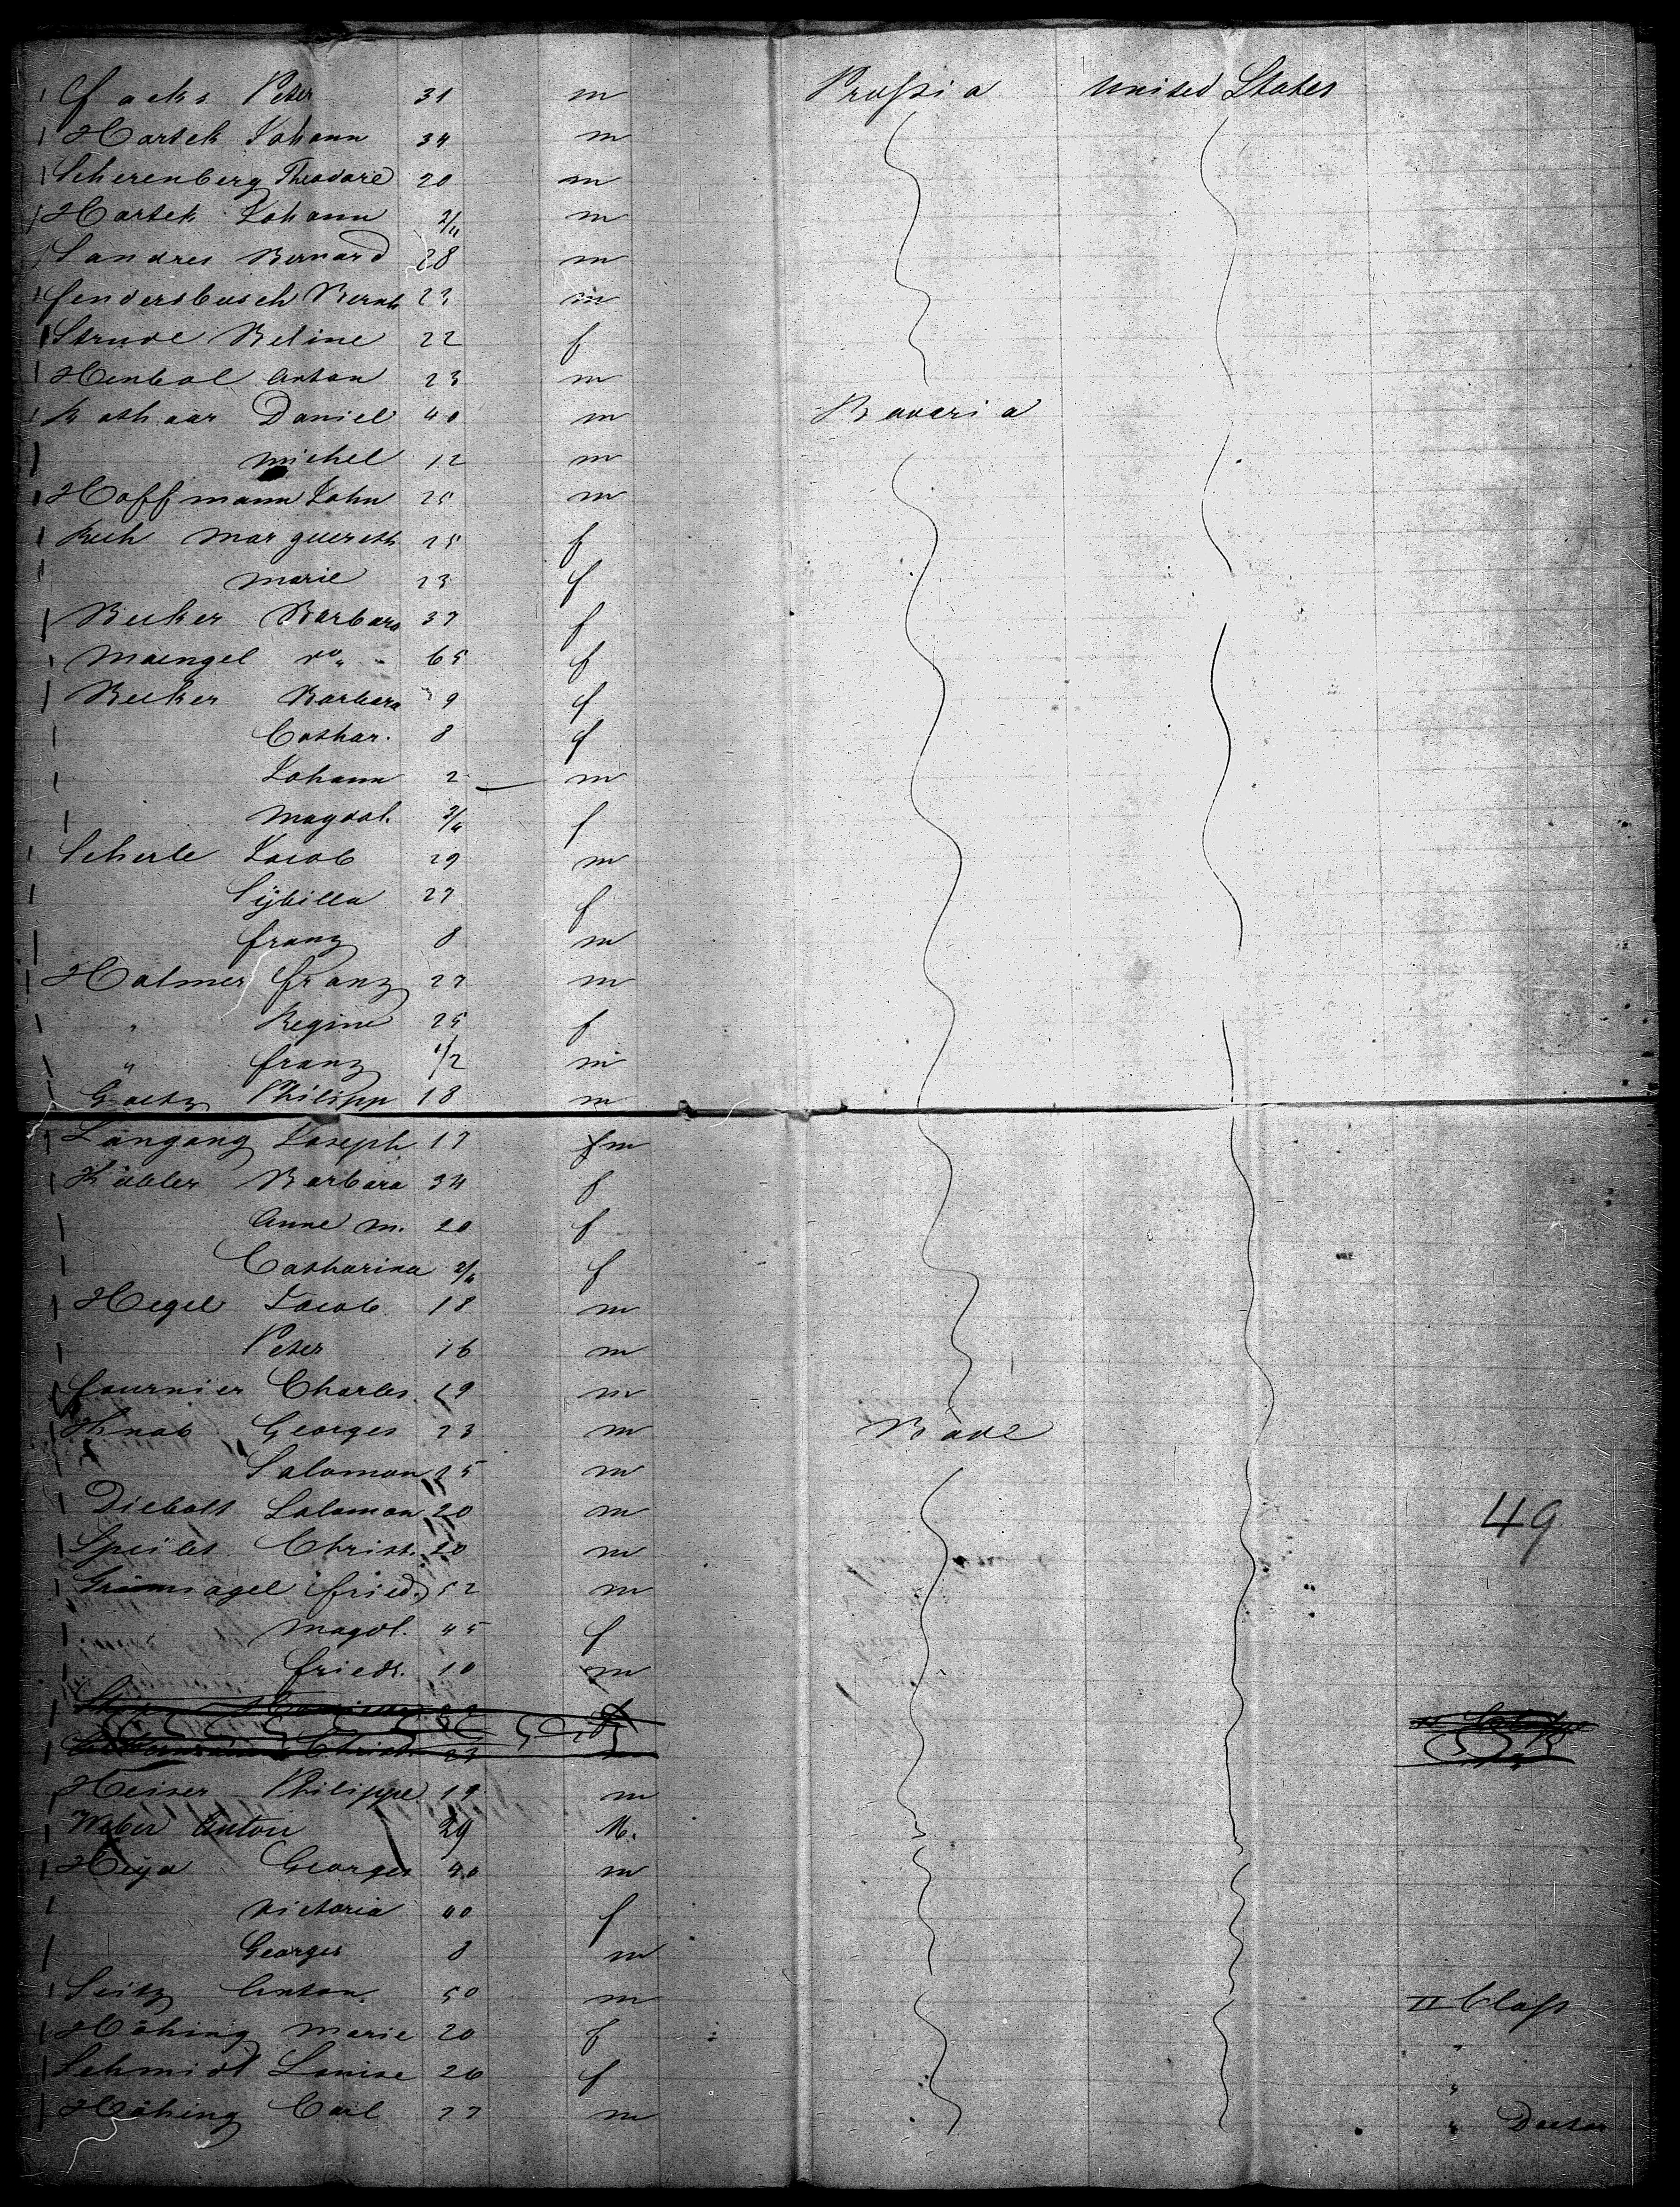 Peter 31 m Prussia United States
Hartek Johann 34 m
Scherenberg Theodore 20 m
Hartek Johann m
Landres Bernard 28 m
Fendersbusch Bernh 23 m
Strude Beline 22 f
Henbol Anton 23 m
Rothaar Daniel 40 m Bavaria
Michel 12 m
Hoffmann John 25 m
Ruh Marguereth 25 f
Marie 23 f
Becker Barbara 37 f
Maengel do " 65 f
Becker Barbara 9 f
Cathar. 8 f
Johann 2 m
Magdal. 3/4 f
Scherle Jacob 29 m
Sÿbilla 27 f
Franz 8 m
Halmer Franz 27 m
" Regine 25 f
" Franz 1/2 m
Goetz Philipp 18 m
Langang Joseph 17 m
Kübler Barbara 34 f
Anne M. 20 f
Catharina f
Hegel Jacob 18 m
Peter 16 m
Fournier Charles 19 m
Knab Georges 23 m Bade
Salomon 25 m
Diebolt Salomon 20 m 49
Christ. 20 m
Fried. 52 m
Magdl. 45 f
Friedr. 10 m
Heiser Philippe 19 m
Weber Anton 29 M.
Heya Georges 40 m
Victoria 40 f
Georges 8 m
Seitz Anton 50 m II Class
Höhing Marie 20 f "
Schmidt Louise 26 f "
Höhing Carl 27 m " Doctor